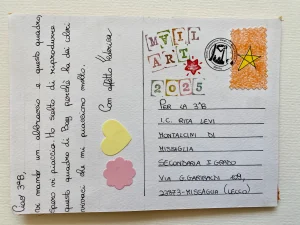 Cara 3°B,
vi mando un abbraccio e questo quadro,
spero vi piaccia. Ho scelto di riprodurre
questo quadro di perché ha dei colori
che mi piacciono molto.
Con affetto
MAIL
ART
2025
PER LA 3°B
I.C. RITA LEVI
MONTALCINI DI
MISSAGLIA
SECONDARIA I GRADO
VIA G. GARIBALDI 109,
23873-MISSAGLIA (LECCO)